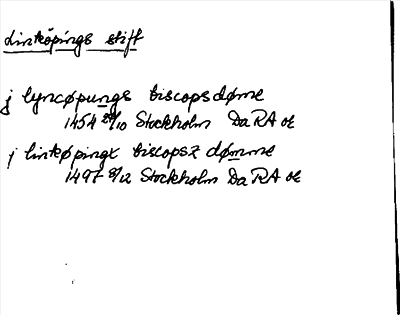 Linköpings stift
j lyncøpungs biscopsdøme
1454 28/10 Stockholm DaRA oe
j linkøpingx biscopsz dømme
1497 8/12 Stockholm DaRA oe